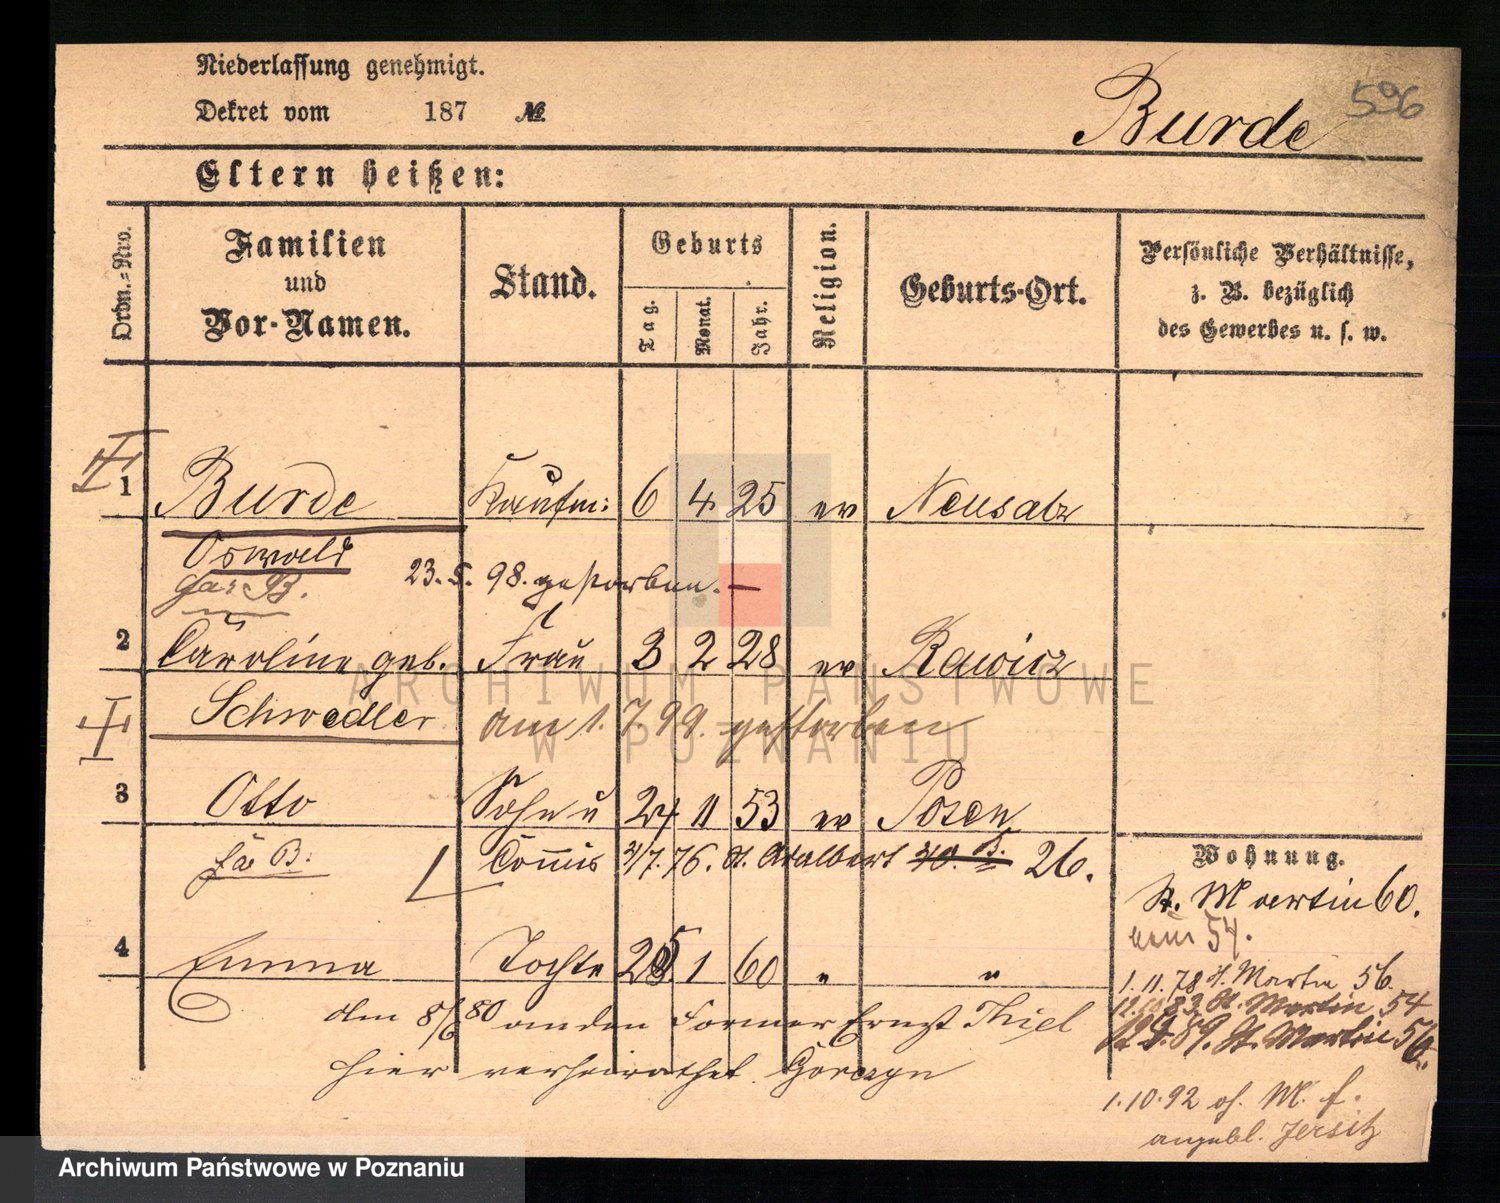 Niederlassung genehmigt.
Dekret vom 187 №
Burde
596
Eltern heißen:
Ordn.-Nro.
Familien
und
Vor-Namen.
Stand.
Geburts
Tag.
Monat.
Jahr.
Religion.
Geburts-Ort.
Persönliche Verhältnisse,
z. B. bezüglich
des Gewerbes u. s. w.
1 Burde Kaufm: 6 4 25 ev Neusalz
Oswald
23.5.98. gestorben. —
2 Caroline geb. Frau 3 2 28 ev Rawicz
Schwedler am 1.7.99. gestorben
3 Otto Sohn u 24 11 53 ev Posen
Commis 7.76. St. Adalbert 26.
4 Emma Tochter 1 60 " "
den 8/6 80 an den Former Ernst Thiel
hier verheirathet Gorczyn
Wohnung.
St. Martin 60.
54.
1.11.78 St. Martin 56.
St. Martin 54
89. St. Martin 56.
1.10.92
angebl. Jersitz
ARCHIWUM PAŃSTWOWE
W POZNANIU
Archiwum Państwowe w Poznaniu